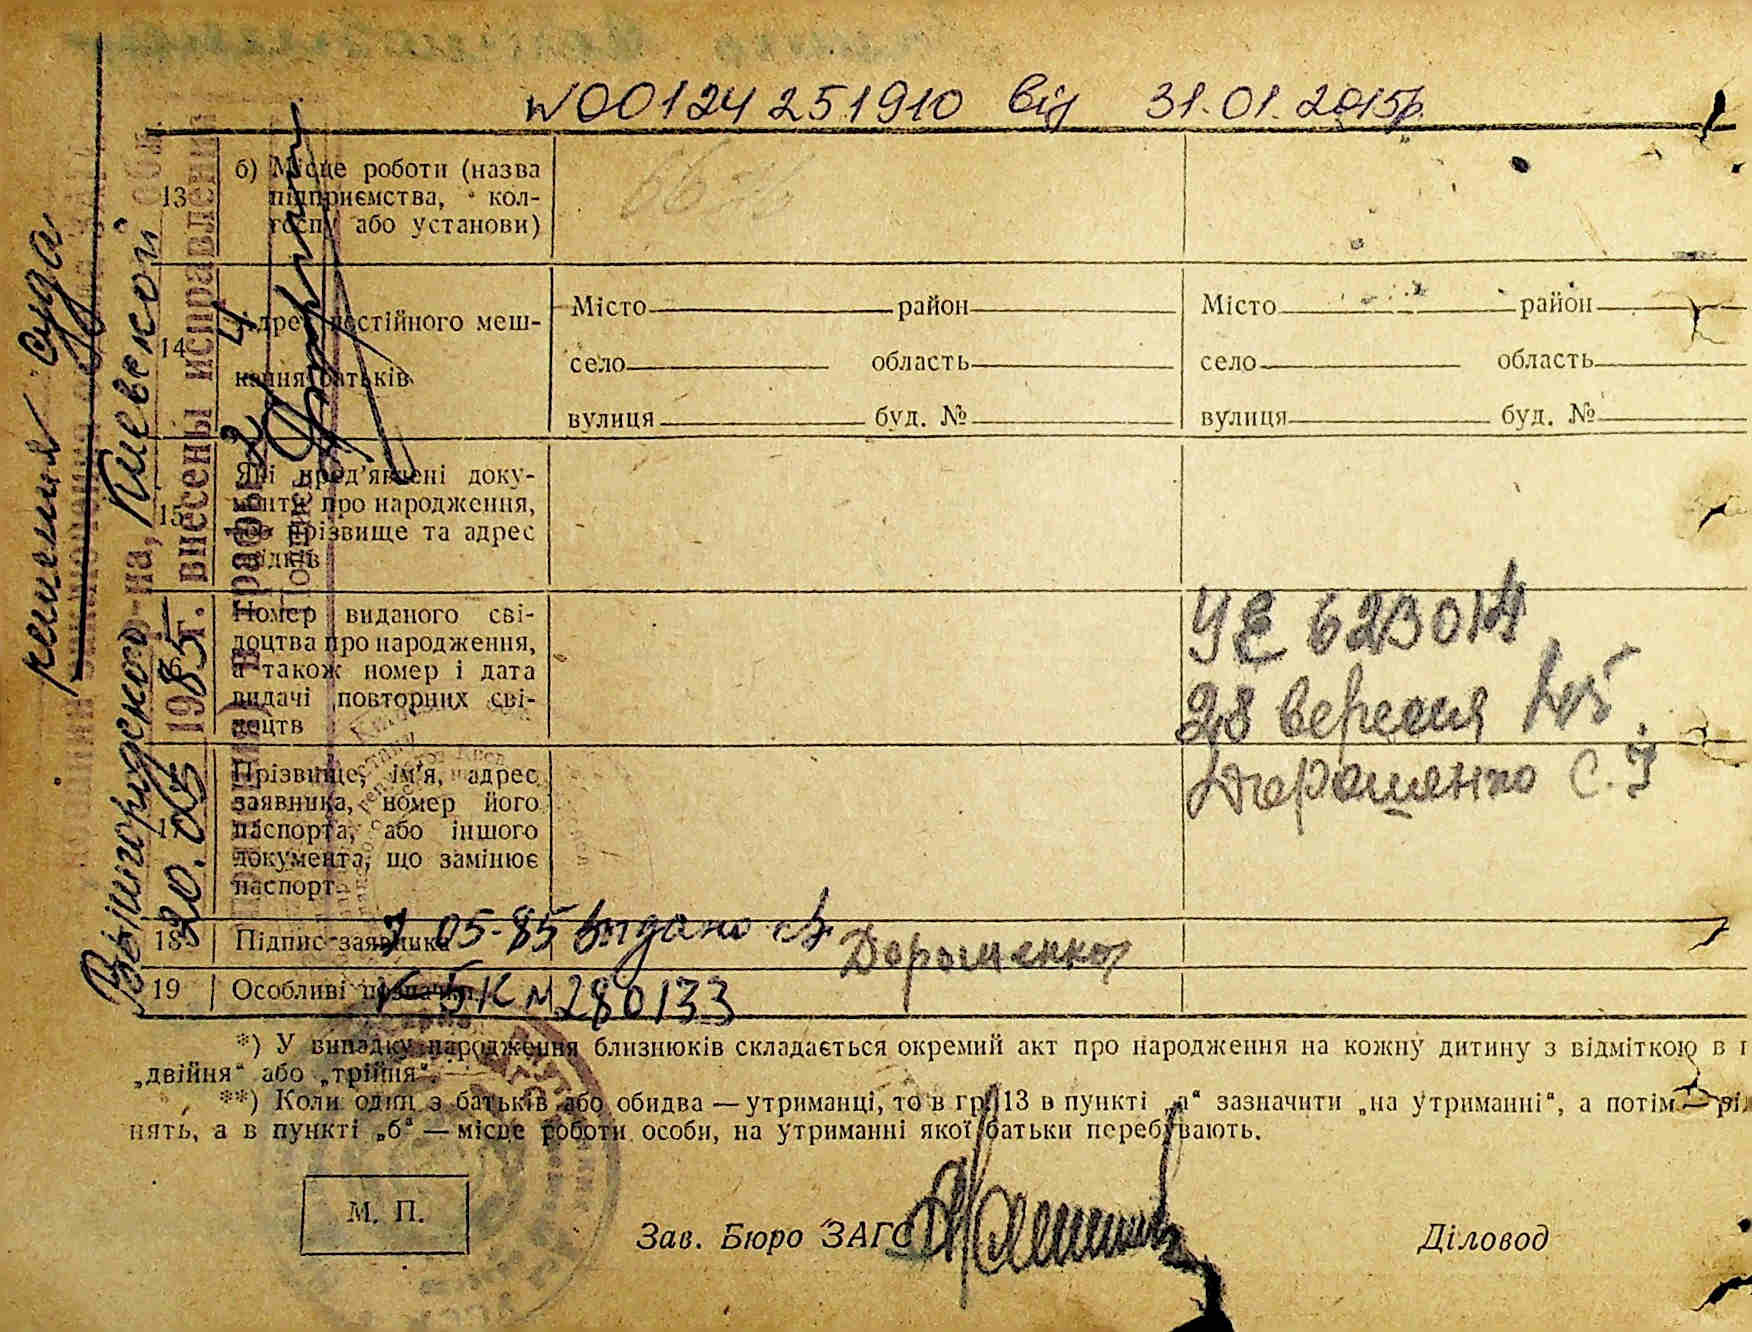 N00124251910 від 31.01.2015р.
13 б) Місце роботи (назва
підприємства, кол-
госпу або установи)
66
14 Адрес постійного меш-
кання батьків
Місто район Місто район
село область село область
вулиця буд. № вулиця буд. №
15 Які пред'явлені доку-
менти про народження,
або прізвище та адрес
свідків
Номер виданого сві-
доцтва про народження,
а також номер і дата
видачі повторних сві-
доцтв
УЕ 623014
28 вересня
Дорошенко С. І
17 Прізвище, ім'я, адрес
заявника, номер його
паспорта, або іншого
документа, що замінює
паспорт
18 Підпис заявника
05-85 видано св
Дорошенко
19 Особливі
№ 280133
*) У випадку народження близнюків складається окремий акт про народження на кожну дитину з відміткою в г
„двійня“ або „трійня“.
**) Коли один з батьків або обидва — утриманці, то в гр. 13 в пункті „а“ зазначити „на утриманні“, а потім —
нять, а в пункті „б“ — місце роботи особи, на утриманні якої батьки перебувають.
М. П.
Зав. Бюро ЗАГС
Діловод
решения суда
Вышгородского р-на, Киевской обл.
20.05 1985г. внесены исправления
в графы 2, 4